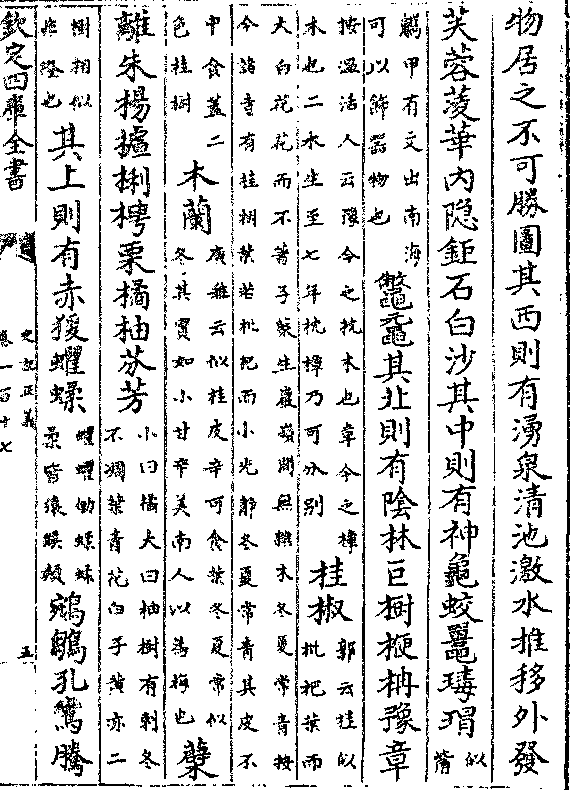 物居之不可勝圖其西則有湧泉清池激水推移外發
芙蓉蔆華内隐鉅石白沙其中則有神龜蛟鼉瑇瑁似觜
觿甲有文出南海可以飾器物也鼈黿其北則有陰林巨樹楩柟豫章
按溫活人云豫今之枕木也章今之樟木也二木生至七年枕樟乃可分别桂椒郭云桂似枇杷葉而
大白花花而不著子叢生巖嶺間無雜木冬夏常青按今諸寺有桂樹葉若枇杷而小光静冬夏常青其皮不
中食蓋二色桂樹木蘭廣雅云似桂皮辛可食葉冬夏常似冬其實如小甘辛美南人以為梅也蘗
離朱楊樝梸梬栗橘柚芬芳小曰橘大曰柚樹有刺冬不凋葉青花白子黄亦二
樹相似非橙也其上則有赤猨蠷蝚
鵷鶵孔鸞騰
欽定四庫全書
史記正義
卷一百十七
五